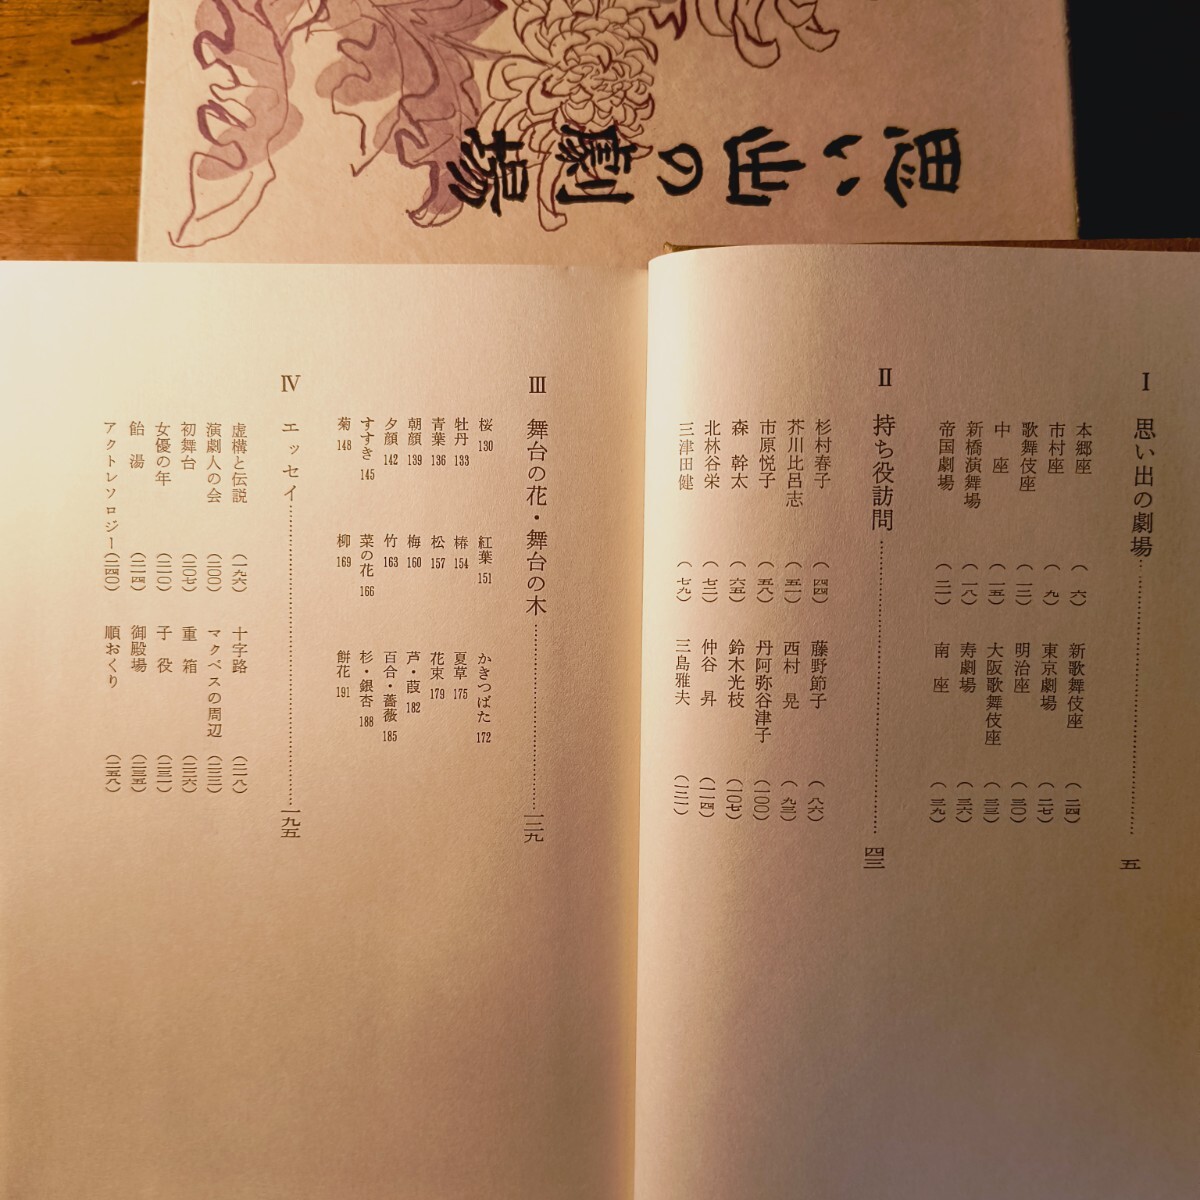 思い出の劇場
Ⅰ 思い出の劇場……五
本郷座 (六) 新歌舞伎座 (二四)
市村座 (九) 東京劇場 (二七)
歌舞伎座 (一二) 明治座 (三〇)
中座 (一五) 大阪歌舞伎座 (三三)
新橋演舞場 (一八) 寿劇場 (三六)
帝国劇場 (二一) 南座 (三九)
Ⅱ 持ち役訪問……四三
杉村春子 (四四) 藤野節子 (八六)
芥川比呂志 (五一) 西村晃 (九三)
市原悦子 (五八) 丹阿弥谷津子 (一〇〇)
森幹太 (六五) 鈴木光枝 (一〇七)
北林谷栄 (七二) 仲谷昇 (一一四)
三津田健 (七九) 三島雅夫 (一二一)
Ⅲ 舞台の花・舞台の木……一二九
桜 130 紅葉 151 かきつばた 172
牡丹 133 椿 154 夏草 175
青葉 136 松 157 花束 179
朝顔 139 梅 160 芦・葭 182
夕顔 142 竹 163 百合・薔薇 185
すすき 145 菜の花 166 杉・銀杏 188
菊 148 柳 169 餅花 191
Ⅳ エッセイ……一九五
虚構と伝説 (一九六) 十字路 (二一八)
演劇人の会 (二〇〇) マクベスの周辺 (二二二)
初舞台 (二〇七) 重箱 (二二六)
女優の年 (二一〇) 子役 (二三一)
飴湯 (二一四) 御殿場 (二三五)
アクトレソロジー (二四〇) 順おくり (二五八)